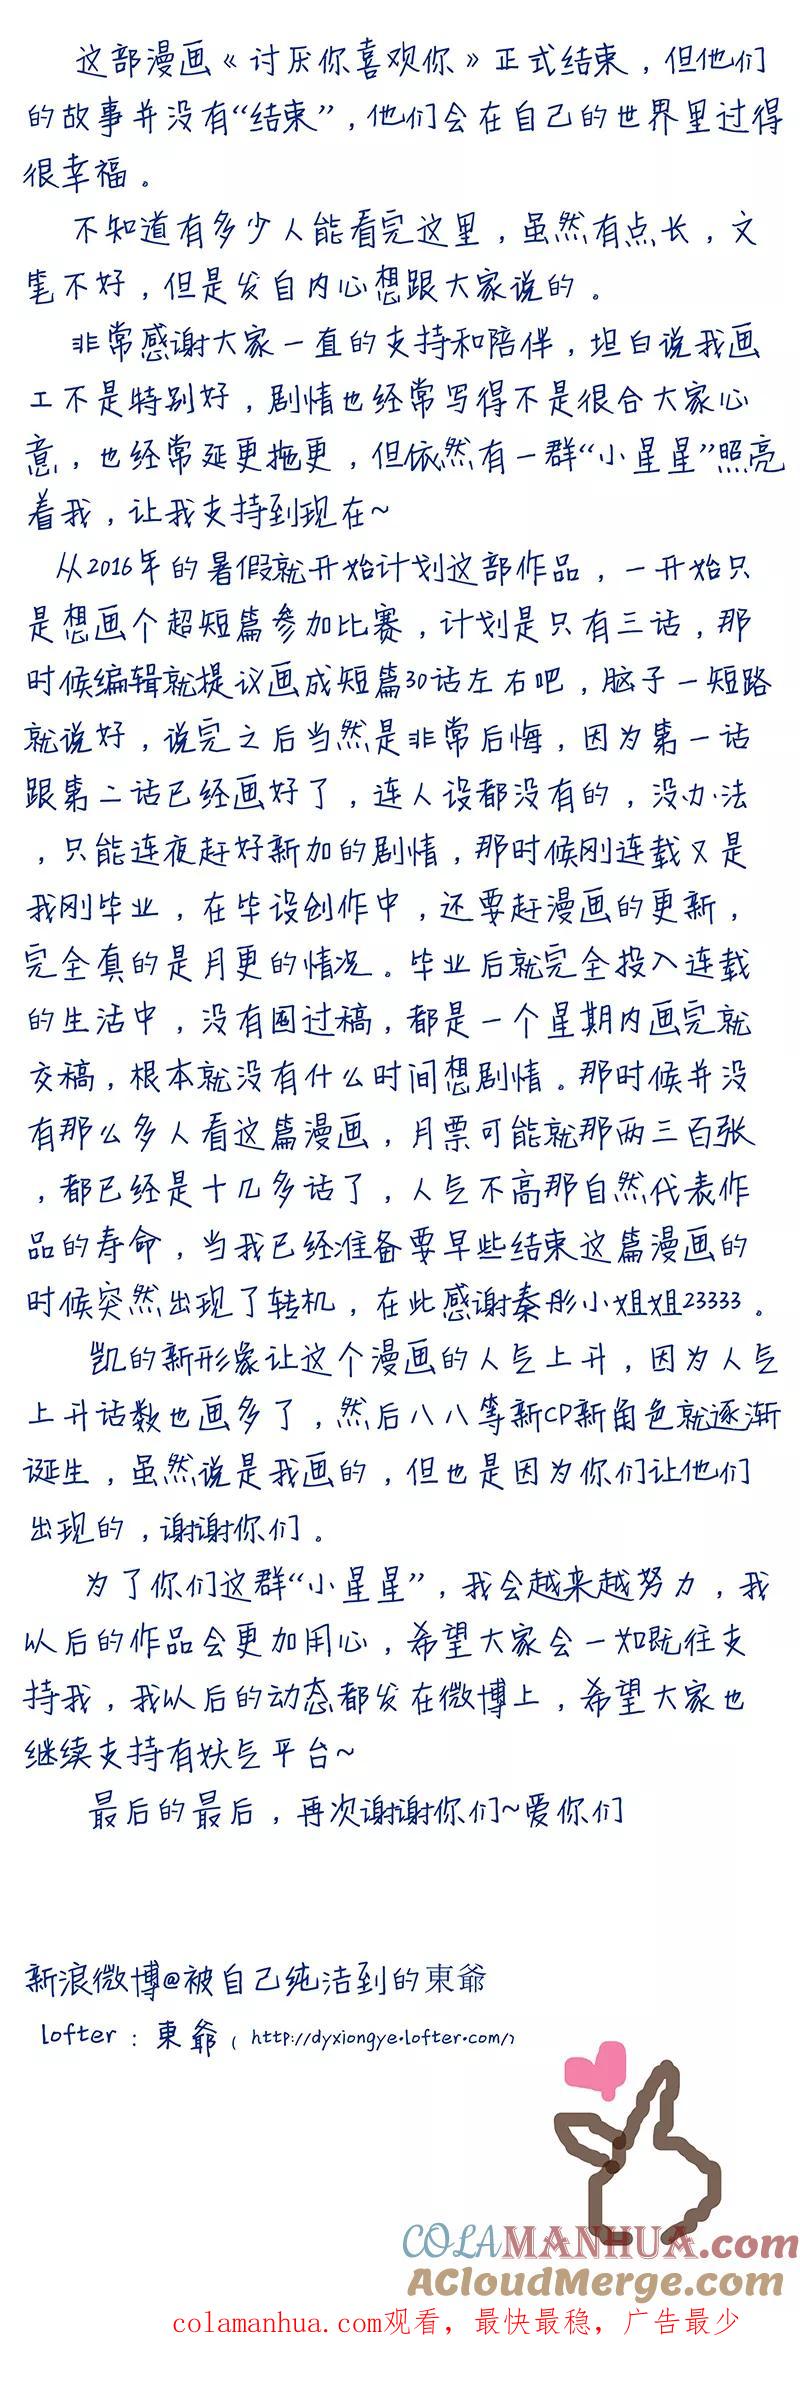 这部漫画《讨厌你喜欢你》正式结束，但他们
的故事并没有“结束”，他们会在自己的世界里过得
很幸福。
不知道有多少人能看完这里，虽然有点长，文
笔不好，但是发自内心想跟大家说的。
非常感谢大家一直的支持和陪伴，坦白说我画
工不是特别好，剧情也经常写得不是很合大家心
意，也经常延更拖更，但依然有一群“小星星”照亮
着我，让我支持到现在~
从2016年的暑假就开始计划这部作品，一开始只
是想画个超短篇参加比赛，计划是只有三话，那
时候编辑就提议画成短篇30话左右吧，脑子一短路
就说好，说完之后当然是非常后悔，因为第一话
跟第二话已经画好了，连人设都没有的，没办法
，只能连夜赶好新加的剧情，那时候刚连载又是
我刚毕业，在毕设创作中，还要赶漫画的更新，
完全真的是月更的情况。毕业后就完全投入连载
的生活中，没有囤过稿，都是一个星期内画完就
交稿，根本就没有什么时间想剧情。那时候并没
有那么多人看这篇漫画，月票可能就那两三百张
，都已经是十几多话了，人气不高那自然代表作
品的寿命，当我已经准备要早些结束这篇漫画的
时候突然出现了转机，在此感谢秦彤小姐姐23333。
凯的新形象让这个漫画的人气上升，因为人气
上升话数也画多了，然后八八等新CP新角色就逐渐
诞生，虽然说是我画的，但也是因为你们让他们
出现的，谢谢你们。
为了你们这群“小星星”，我会越来越努力，我
以后的作品会更加用心，希望大家会一如既往支
持我，我以后的动态都发在微博上，希望大家也
继续支持有妖气平台~
最后的最后，再次谢谢你们~爱你们
新浪微博@被自己纯洁到的東爺
lofter：東爺（http://dyxiongye.lofter.com/）
COLAMANHUA.com
ACloudMerge.com
colamanhua.com观看，最快最稳，广告最少